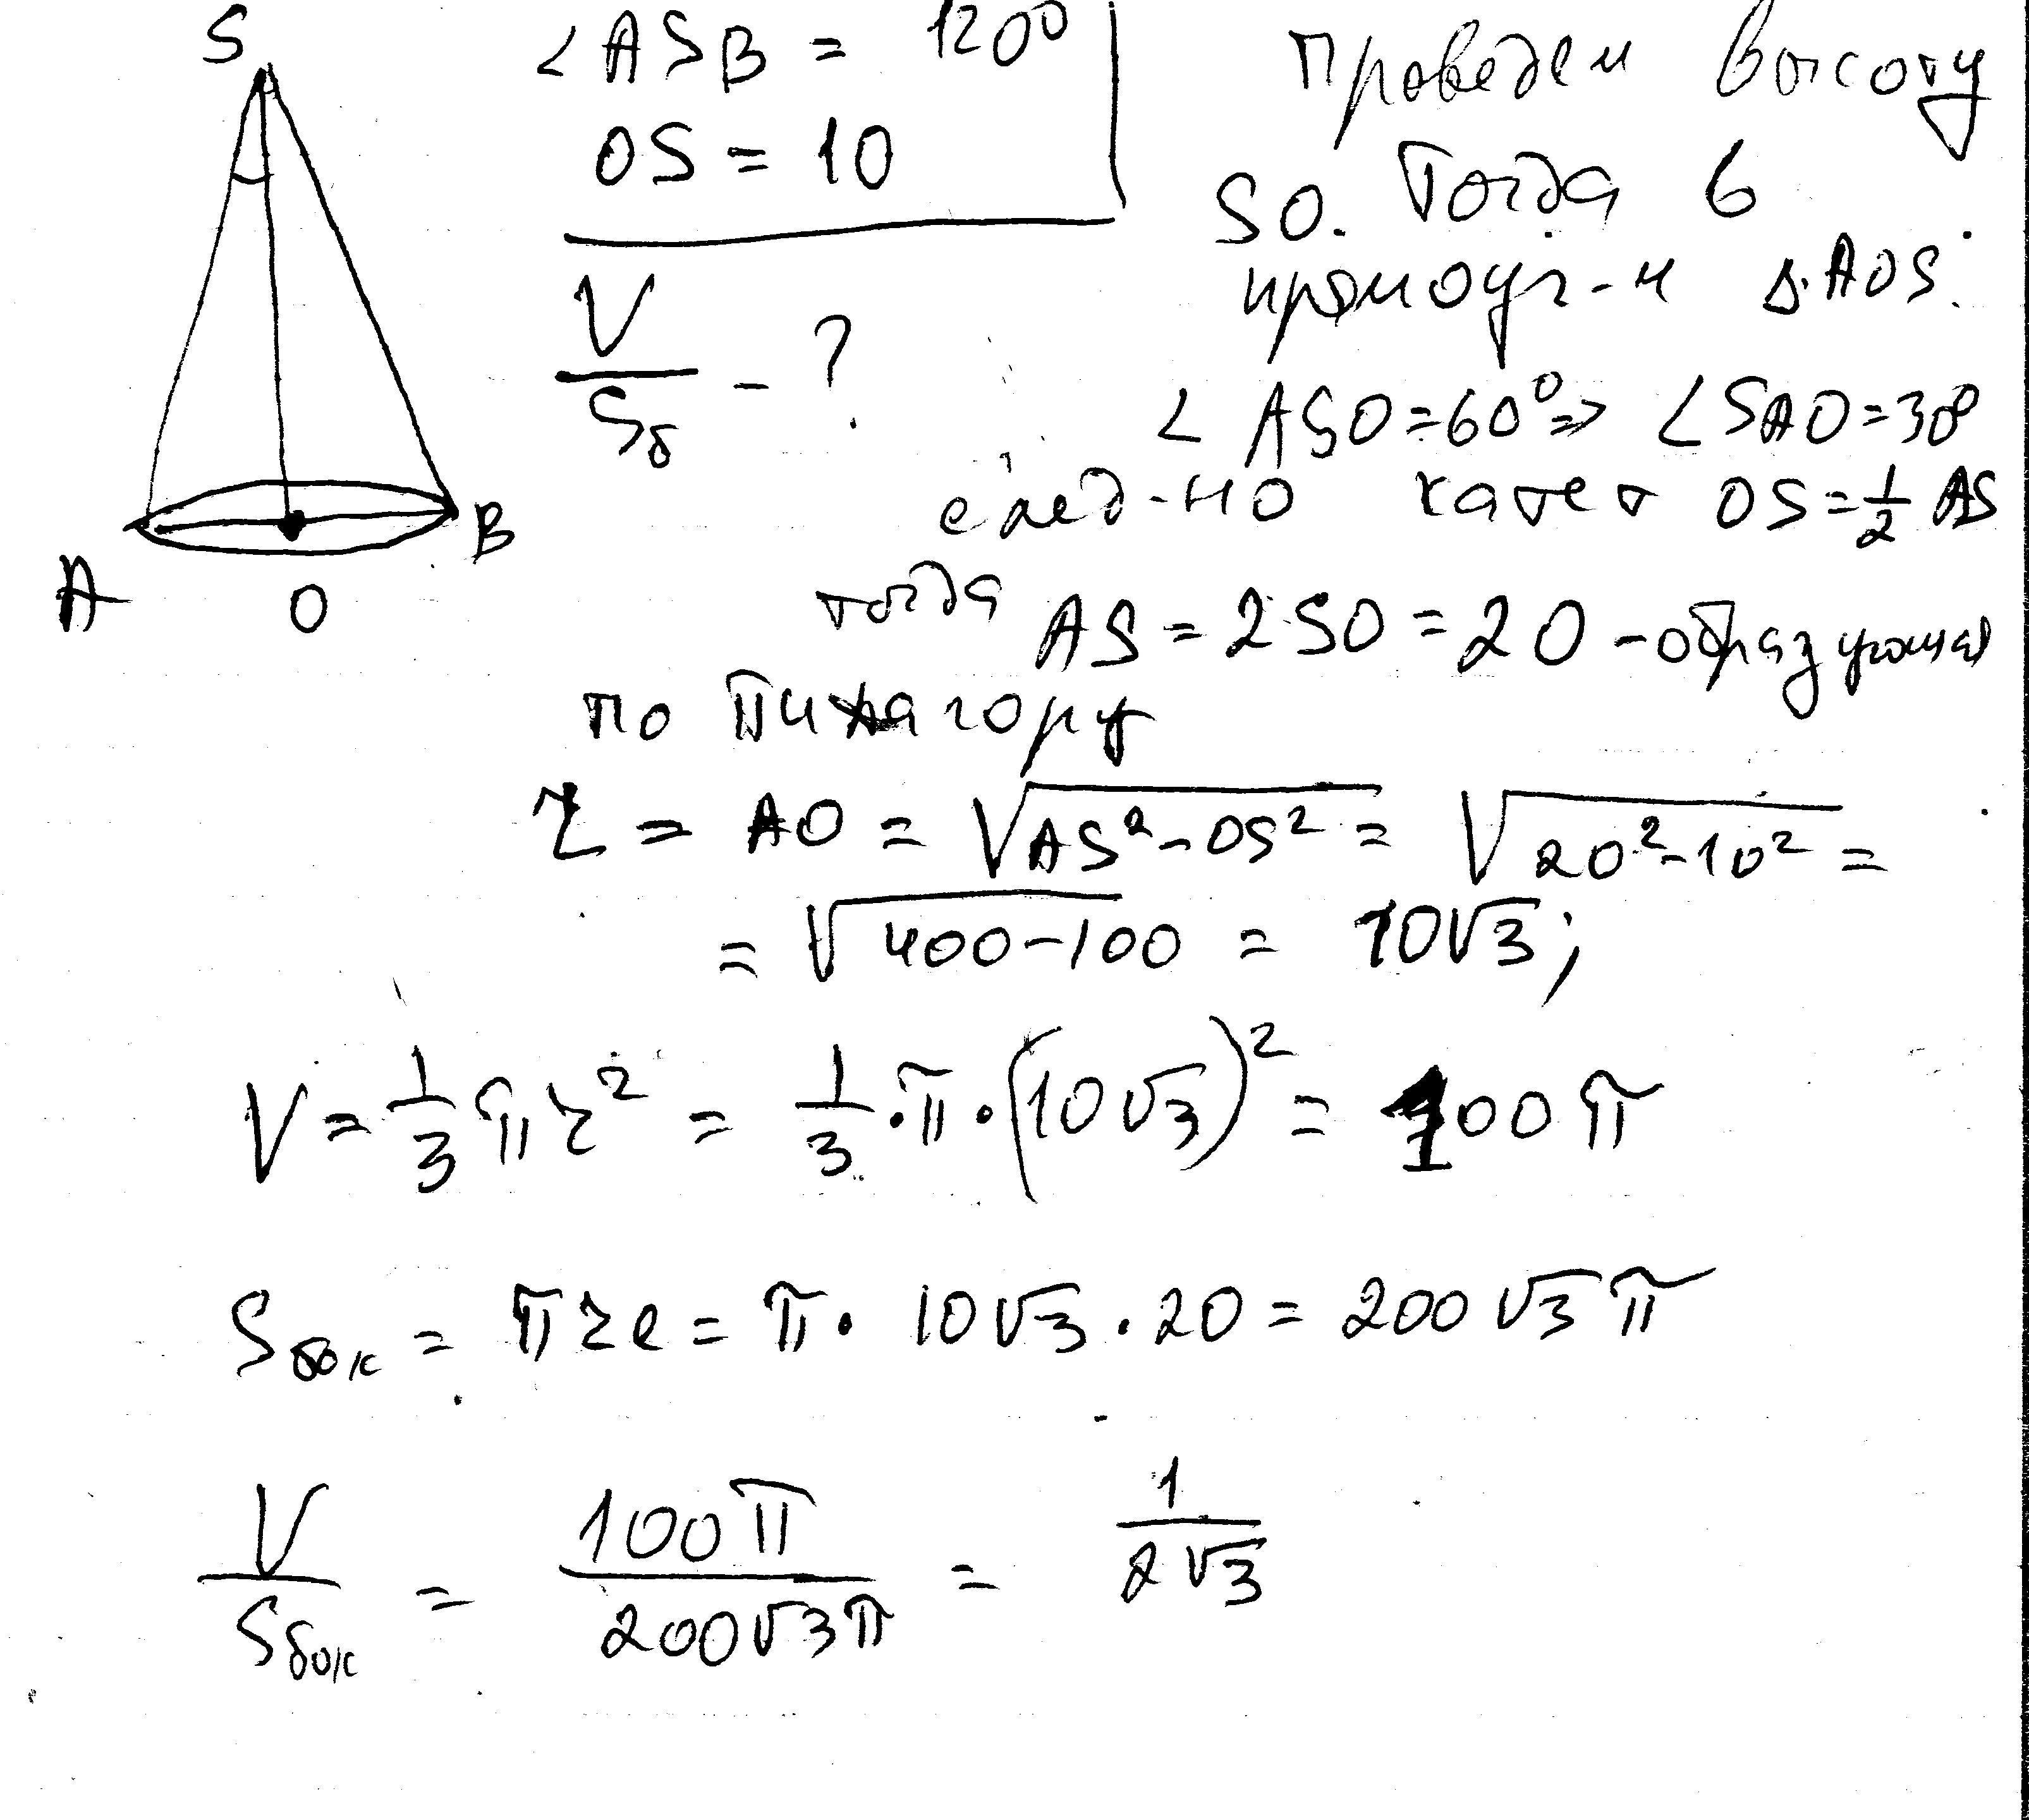 S
∠ASB = 120°
OS = 10
V/Sб - ?
A O B
Проведем высоту
SO. Тогда в
прямоуг-м ΔAOS:
∠ASO=60° => ∠SAO=30°
след-но катет OS = 1/2 AS
тогда AS = 2SO = 20 - образующая
по Пифагору
r = AO = √(AS²-OS²) = √(20²-10²) =
= √(400-100) = 10√3;
V = 1/3 πr² = 1/3 · π · (10√3)² = 100π
Sбок = πrl = π · 10√3 · 20 = 200√3π
V/Sбок = 100π/(200√3π) = 1/(2√3)